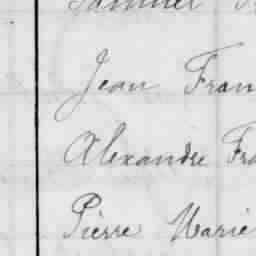 Jean Fran
Alexandre Fra
Pierre Marie